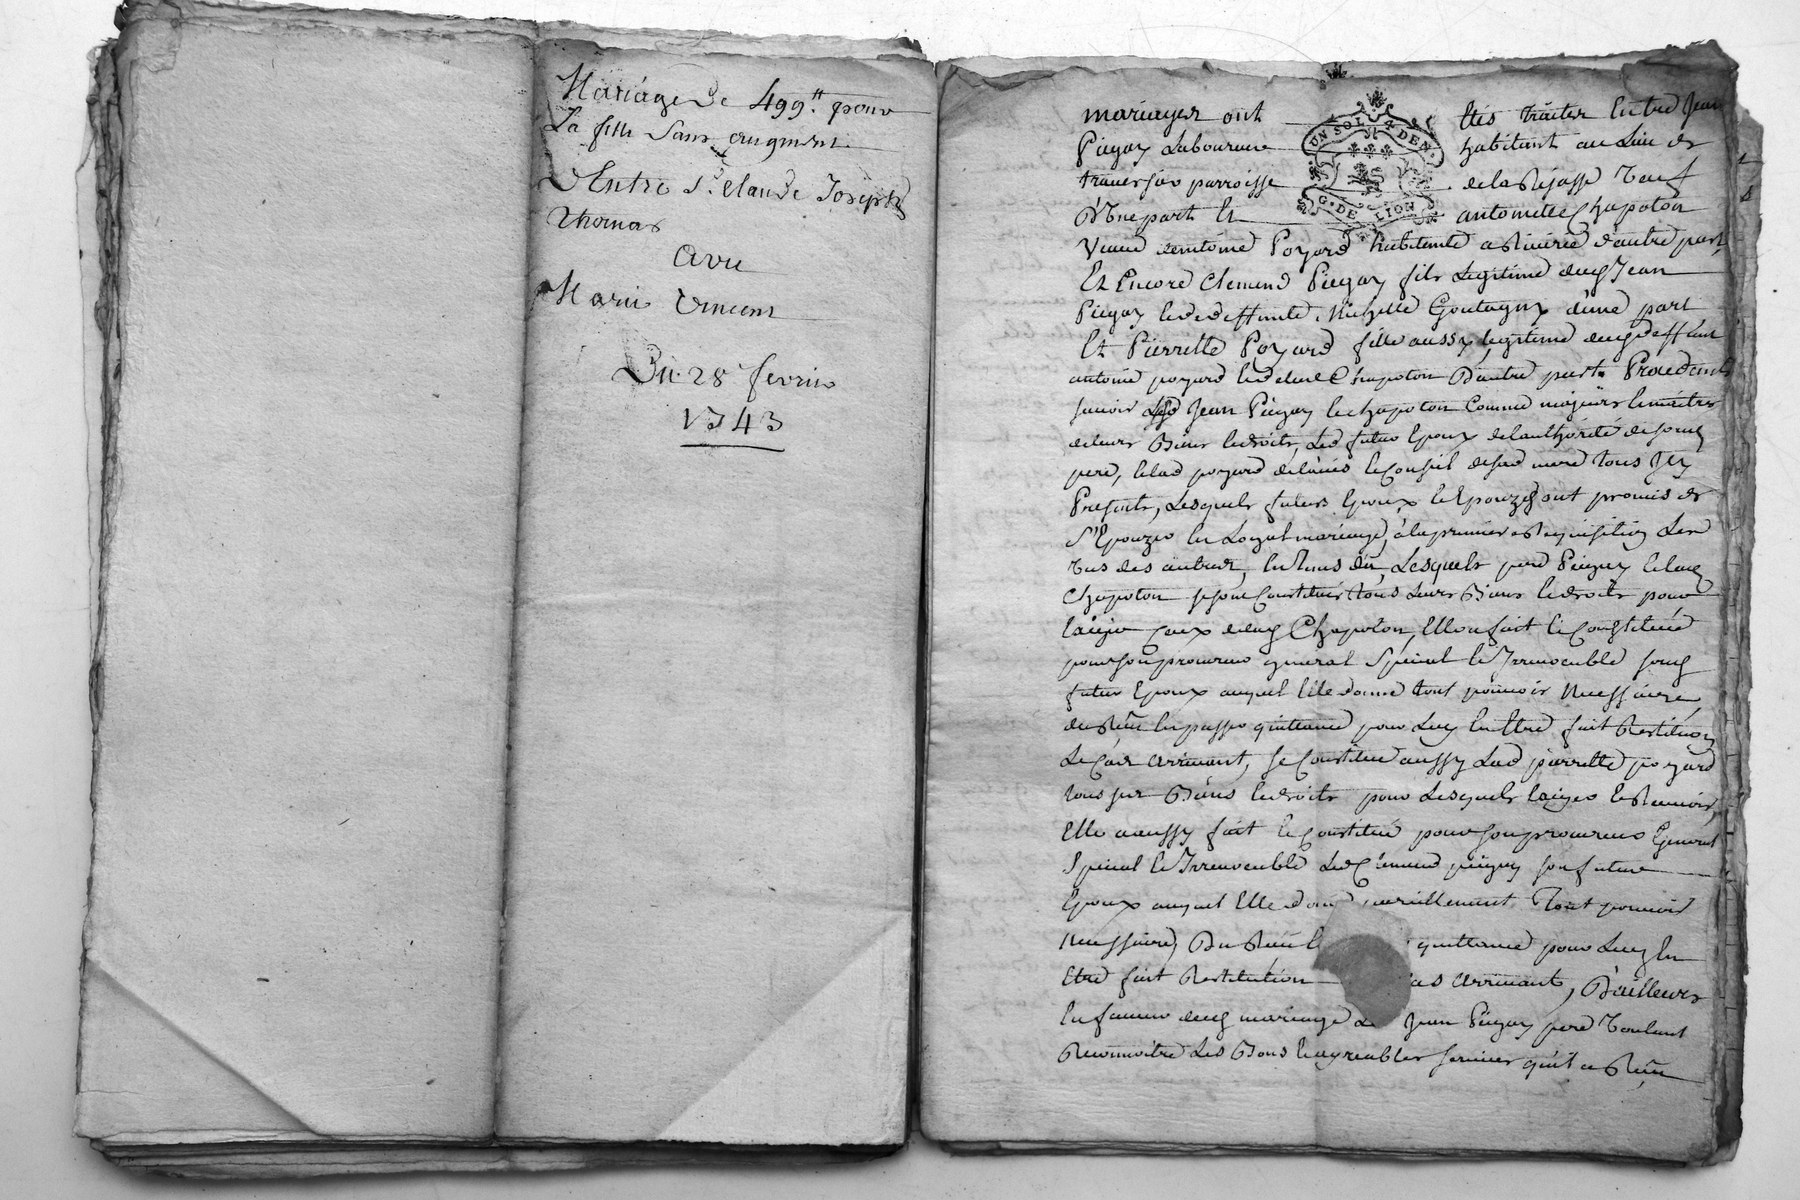 Mariage De 499ᵗᵗ pour
La fille Sans augment
D'Entre Sʳ Claude Joseph
Thomas
avec
Marie Vincent
Du 28 fevrier
1743
UN SOL 4 DEN.
G. DE LION
mariages ont Etés traites Entre Jean
Piegay Laboureur habitant au Lieu de
parroisse de la Rejasse veuf
D'Une part Et antoinette Chapoton
Veuve d'entoine Poyard habitante a Riverie d'autre part,
Et Encore Clemend Piegay fils Legitime dud Jean
Piegay et de deffunte Michelle Goutagny d'une part
Et Pierrette Poyard fille aussy Legitime dud deffunt
antoine poyard et de lad Chapoton D'autre part. Procedants
scavoir Led Jean Piegay et Chapoton Comme majeurs et maitres
de leurs Biens et droits, Led futur Epoux de l'authorité de sond
pere, et lad poyard de l'avis et Conseil de sad mere tous Icy
Presents, Lesquels futurs Epoux et Epouzes ont promis de
S'Epouzer En Loyal mariage, a la premiere Requisition Les
Uns des autres, En Lesquels pere Piegay et lad
Chapoton se sont Constitués tous Leurs Biens et droits pour
ceux de lad Chapoton, Elle a fait et Constitué
pour son procureur general Special et Irrevocable sond
futur Epoux auquel Elle donne tout pouvoir necessaire,
En passer quittance pour Luy En Etre fait Restitution
Le Cas arrivant, se Constitue aussy Lad pierrette poyard
tous ses Biens et droits pour Lesquels Exiger et Recevoir,
Elle a aussy fait et Constitué pour son procureur General
Special et Irrevocable Led Clemend piegay son futur
Epoux auquel Elle donne pareillement Tout pouvoir
necessaire, quittance pour Luy En
Etre fait Restitution Cas arrivant, D'ailleurs
En faveur dud mariage Led Jean Piegay pere Voulant
Reconnoitre Les Bons et agreables services qu'il a Reçu